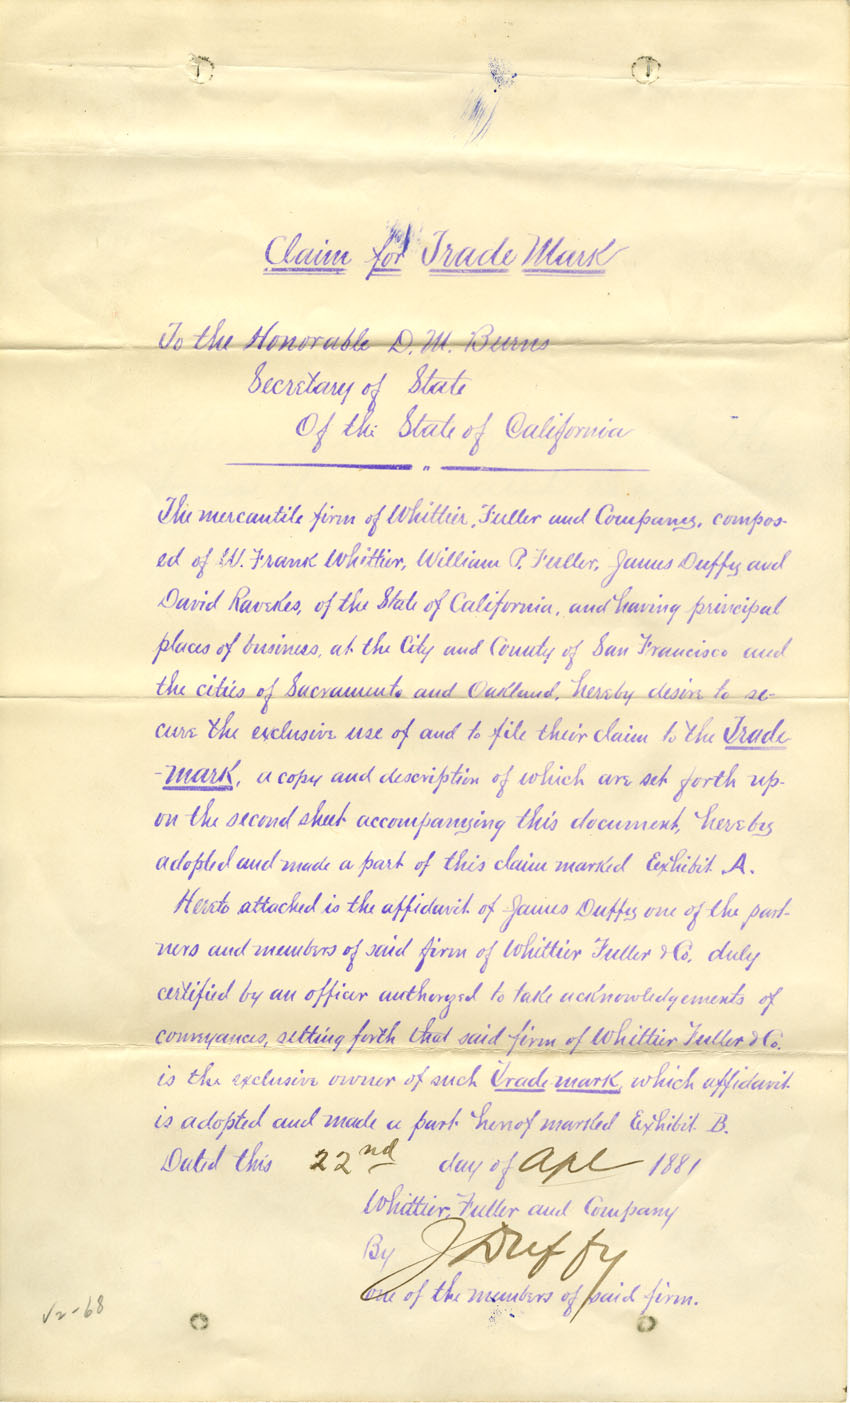 Claim for Trade Mark
To the Honorable D. M. Burns
Secretary of State
Of the State of California
The mercantile firm of Whittier, Fuller and Company, compos-
ed of W. Frank Whittier, William P. Fuller, James Duffy and
David Ravekes, of the State of California, and having principal
places of business, at the City and County of San Francisco and
the cities of Sacramento and Oakland, hereby desire to se-
cure the exclusive use of and to file their claim to the Trade
-mark, a copy and description of which are set forth up-
on the second sheet accompanying this document, hereby
adopted and made a part of this claim marked Exhibit A.
Hereto attached is the affidavit of James Duffy one of the part-
ners and members of said firm of Whittier Fuller & Co. duly
certified by an officer authorized to take acknowledgements of
conveyances, setting forth that said firm of Whittier Fuller & Co.
is the exclusive owner of such Trade-mark, which affidavit
is adopted and made a part hereof marked Exhibit B.
Dated this 22nd day of Apl 1881
Whittier, Fuller and Company
By J Duffy
one of the members of said firm.